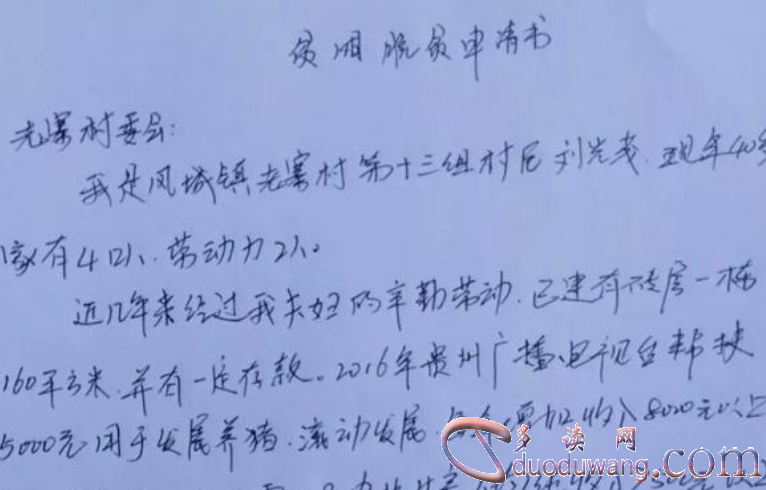 贫困脱贫申请书
老寨村委会:
我是凤城镇老寨村第十三组村民刘光茂.现年40岁
家有4口人.劳动力2人。
近几年来经过我夫妇的辛勤劳动.已建有砖房一栋
160平方米.并有一定存款。2016年贵州广播电视台帮扶
5000元用于发展养猪.滚动发展.增加收入8000元以上
多读网
duoduwang.com